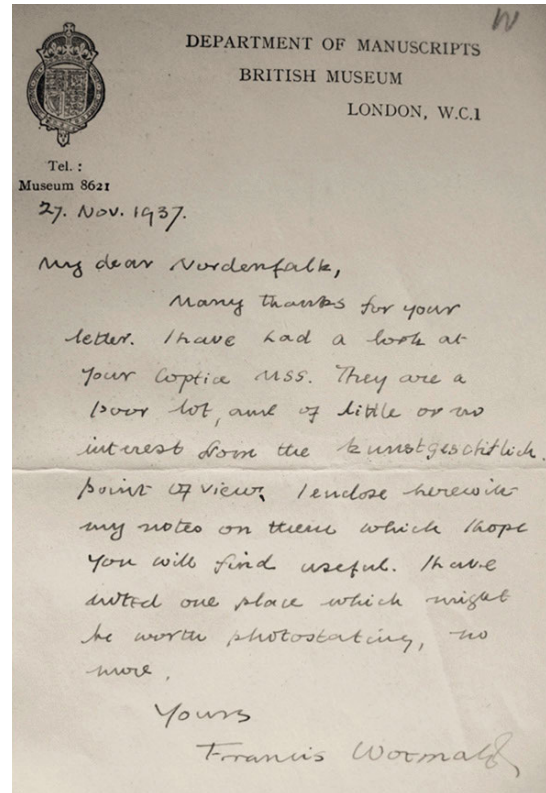 W
DEPARTMENT OF MANUSCRIPTS
BRITISH MUSEUM
LONDON, W.C.1
Tel. :
Museum 8621
27. Nov. 1937.
My dear Nordenfalk,
Many thanks for your
letter. I have had a look at
your Coptic MSS. They are a
poor lot, and of little or no
interest from the kunstgeschitlich
point of view. I enclose herewith
my notes on them which I hope
you will find useful. I have
noted one place which might
be worth photostating, no
more.
Yours
Francis Wormald